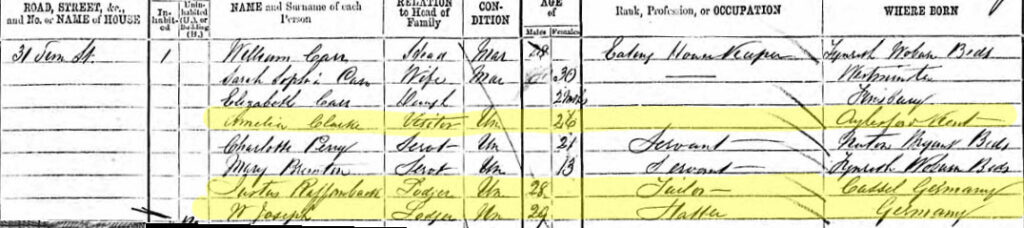 ROAD, STREET, &c., and No. or NAME of HOUSE In-habit-ed Unin-habited (U.), or Building (B.) NAME and Surname of each Person RELATION to Head of Family CON-DITION AGE of Males Females Rank, Profession, or OCCUPATION WHERE BORN
31 St. 1 William Carr Head Mar 28 Eating House Keeper Woburn Beds
Sarah Carr Wife Mar 30 Westminster
Elizabeth Carr Daugh Finsbury
Amelia Clarke Visitor Un 26 Kent
Charlotte Perry Servt Un 21 Servant Beds
Mary Servt Un 13 Servant Woburn Beds
Justus Lodger Un 28 Tailor Cassel Germany
W Joseph Lodger Un 29 Hatter Germany